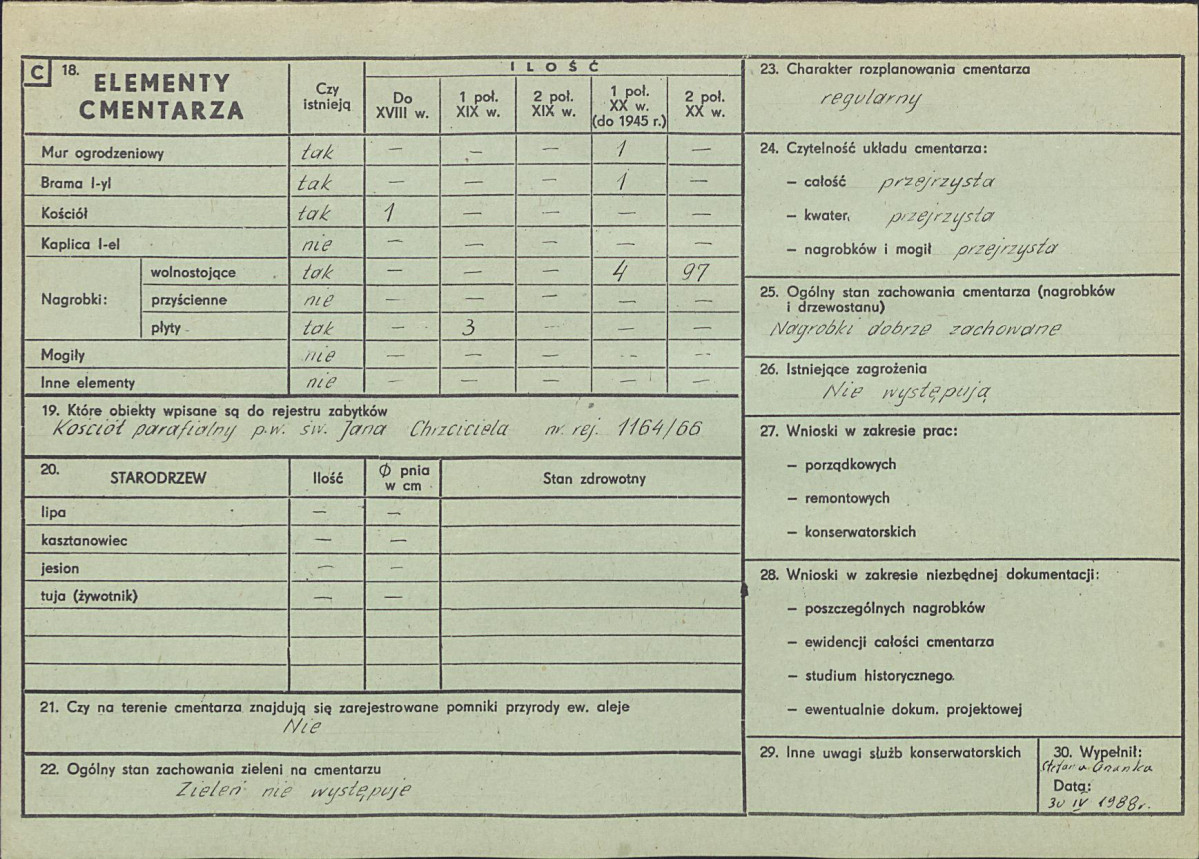 C 18. ELEMENTY CMENTARZA
Czy istnieją
I L O Ś Ć
Do XVIII w.
1 poł. XIX w.
2 poł. XIX w.
1 poł. XX w. (do 1945 r.)
2 poł. XX w.
Mur ogrodzeniowy tak — — — 1 —
Brama I-yl tak — — — 1 —
Kościół tak 1 — — — —
Kaplica I-el nie — — — — —
Nagrobki:
wolnostojące tak — — — 4 97
przyścienne nie — — — — —
płyty tak — 3 — — —
Mogiły nie — — — — —
Inne elementy nie — — — — —
19. Które obiekty wpisane są do rejestru zabytków
Kościół parafialny p.w. św. Jana Chrzciciela nr. rej. 1164/66
20. STARODRZEW Ilość Ø pnia w cm Stan zdrowotny
lipa — —
kasztanowiec — —
jesion — —
tuja (żywotnik) — —
21. Czy na terenie cmentarza znajdują się zarejestrowane pomniki przyrody ew. aleje
Nie
22. Ogólny stan zachowania zieleni na cmentarzu
Zieleń nie występuje
23. Charakter rozplanowania cmentarza
regularny
24. Czytelność układu cmentarza:
– całość przejrzysta
– kwater przejrzysta
– nagrobków i mogił przejrzysta
25. Ogólny stan zachowania cmentarza (nagrobków
i drzewostanu)
Nagrobki dobrze zachowane
26. Istniejące zagrożenia
Nie występują
27. Wnioski w zakresie prac:
– porządkowych
– remontowych
– konserwatorskich
28. Wnioski w zakresie niezbędnej dokumentacji:
– poszczególnych nagrobków
– ewidencji całości cmentarza
– studium historycznego
– ewentualnie dokum. projektowej
29. Inne uwagi służb konserwatorskich
30. Wypełnił:
Data:
30 IV 1988r.